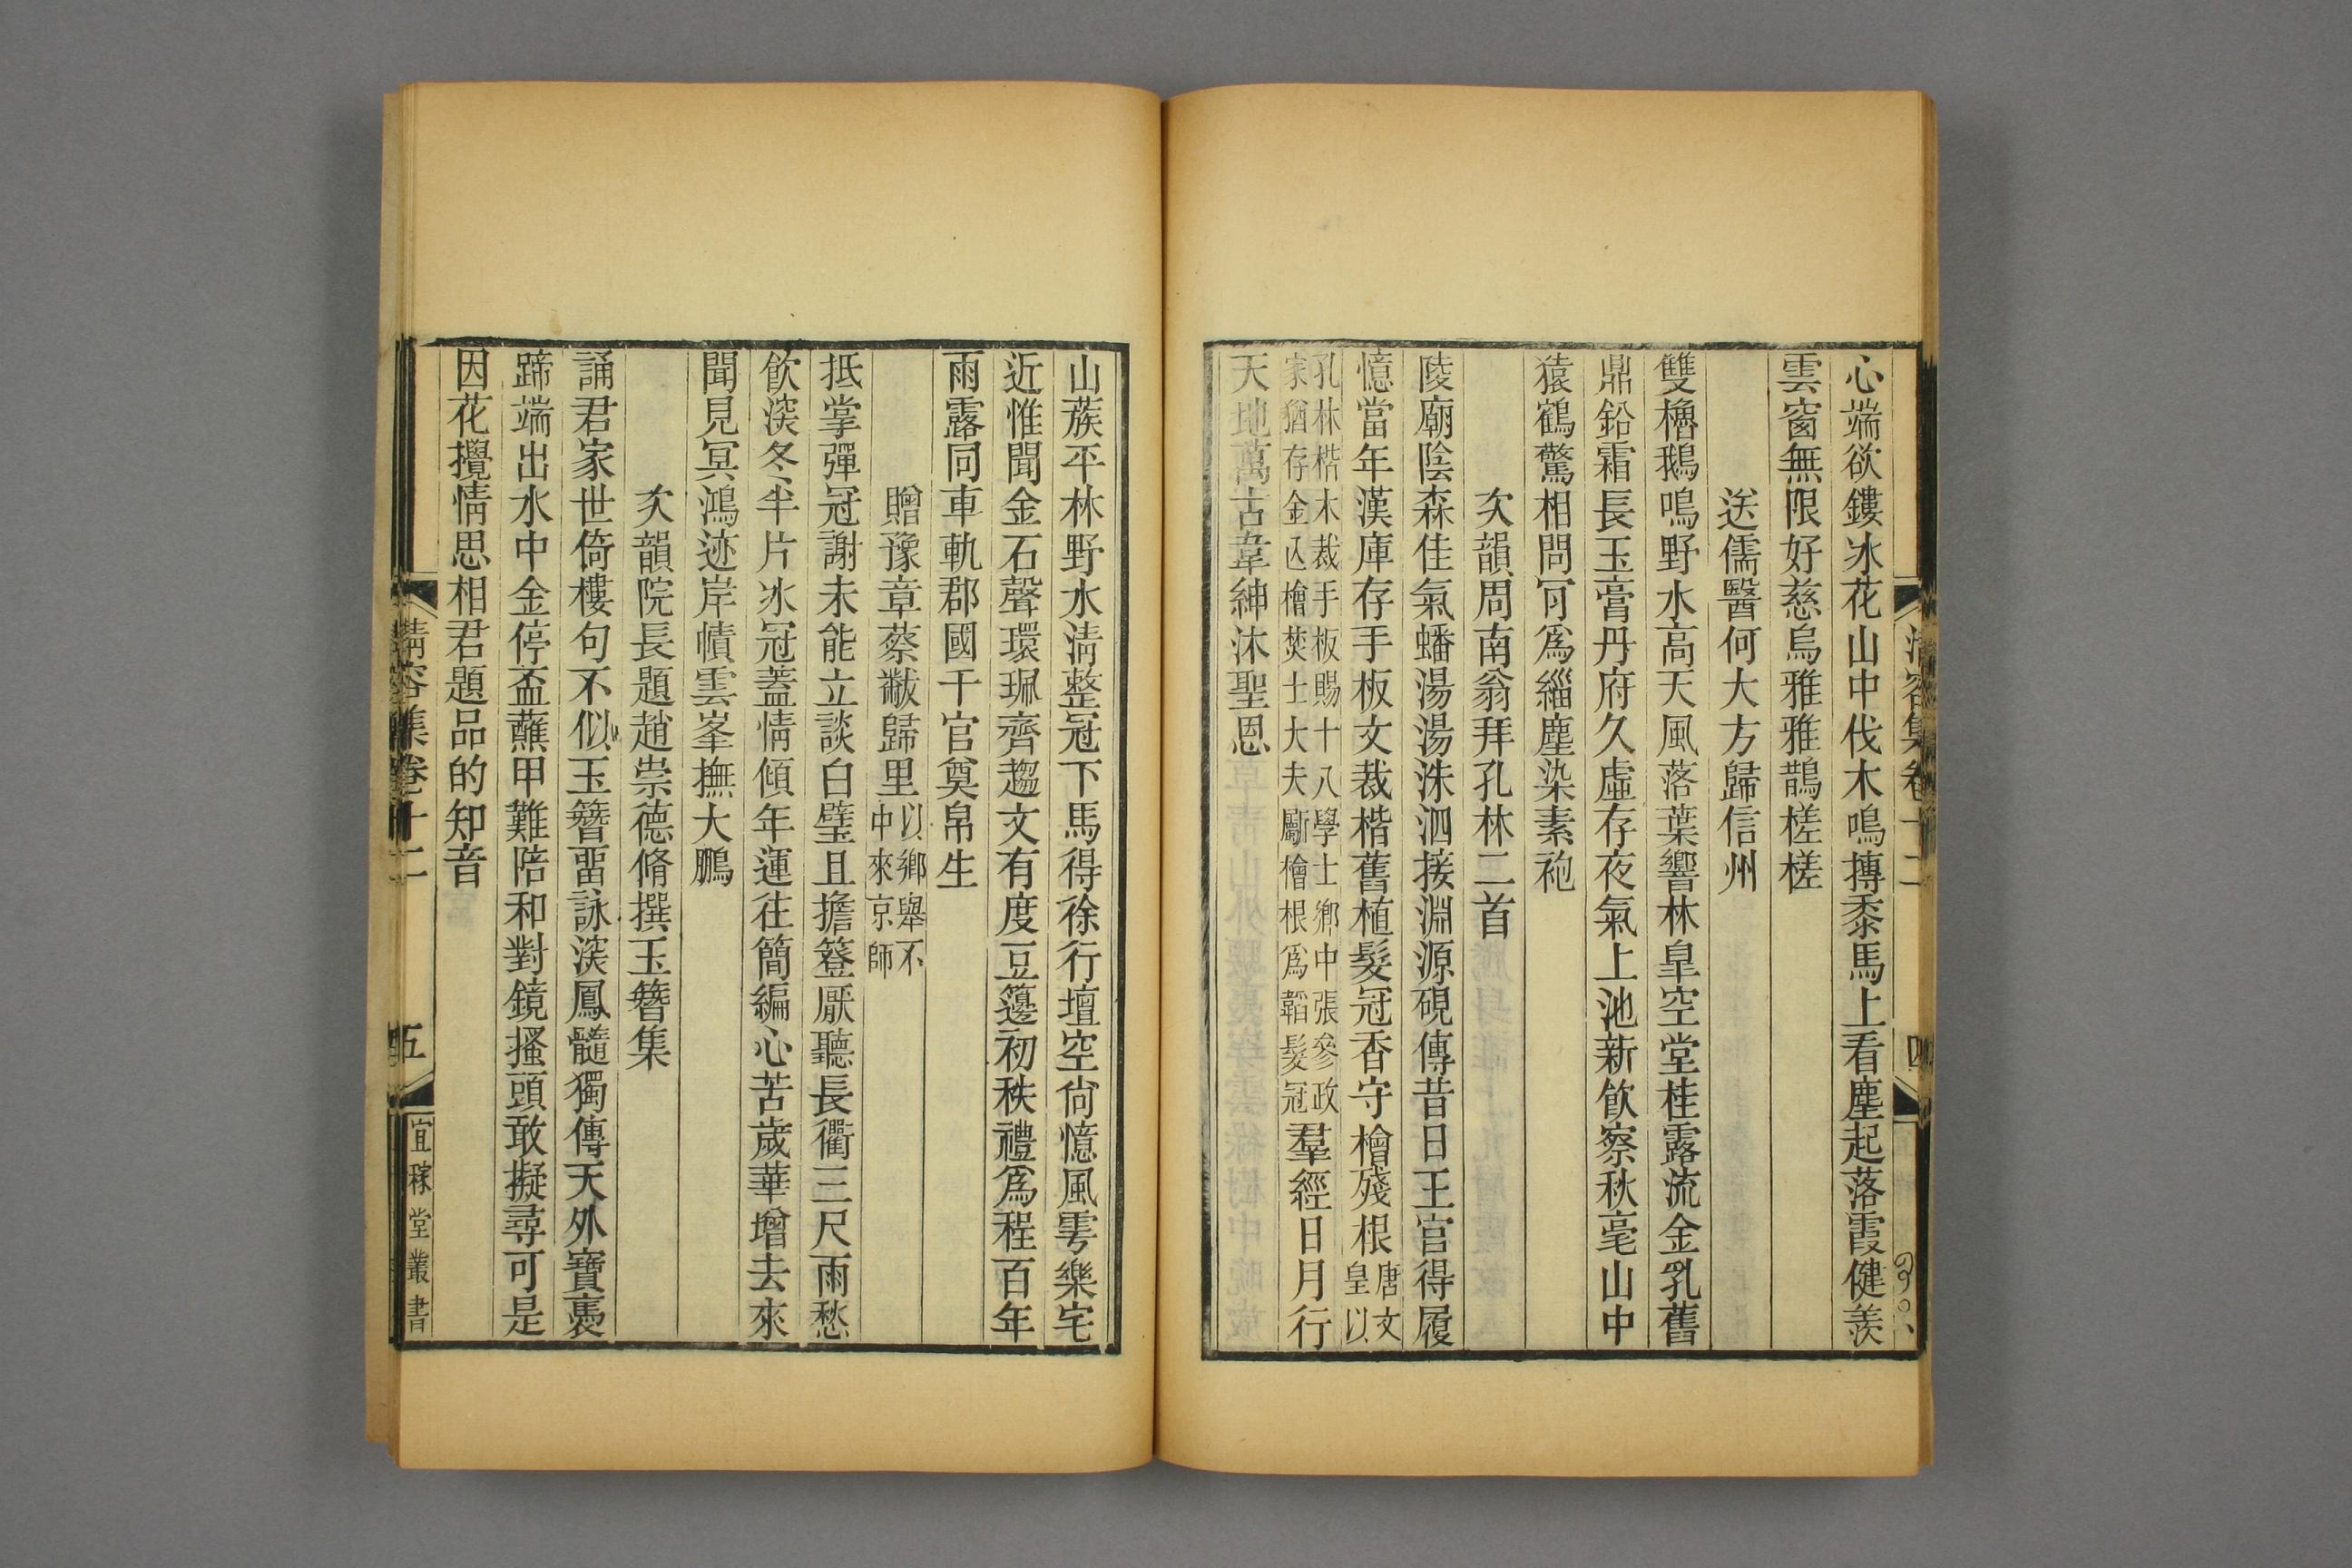 心端欲鏤冰花山中伐木鳴摶黍馬上看塵起落霞健羨
雲窗無限好慈烏雅雅鵲槎槎
送儒醫何大方歸信州
雙櫓鵝鳴野水高天風落葉響林皐空堂桂露流金乳舊
鼎鉛霜長玉膏丹府久虛存夜氣上池新飮察秋毫山中
猿鶴驚相問何爲緇塵染素袍
次韻周南翁拜孔林二首
陵廟陰森佳氣蟠湯湯洙泗接淵源硯傳昔日王宮得履
憶當年漢庫存手板文裁楷舊植髮冠香守檜殘根唐文皇以
孔林楷木裁手板賜十八學士鄉中張參政
家猶存金亾檜焚士大夫斸檜根爲韜髮冠羣經日月行
天地萬古韋紳沐聖恩
清容集卷十二
四
山蔟平林野水淸整冠下馬得徐行壇空尙憶風雩樂宅
近惟聞金石聲環珮齊趨文有度豆籩初秩禮爲程百年
雨露同車軌郡國千官奠帛生
贈豫章蔡黻歸里以鄉舉不中來京師
抵掌彈冠謝未能立談白璧且擔簦厭聽長衢三尺雨愁
飮深冬半片冰冠蓋情傾年運往簡編心苦歲華增去來
聞見冥鴻迹岸幘雲峯撫大鵬
次韻院長題趙崇德脩撰玉簪集
誦君家世倚樓句不似玉簪畱詠深鳳髓獨傳天外寶褭
蹄端出水中金停盃蘸甲難陪和對鏡搔頭敢擬尋可是
因花攪情思相君題品的知音
清容集卷十二
五
宜稼堂叢書